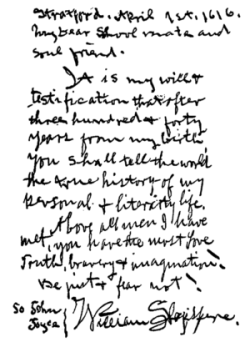 Stratford. April 1st. 1616.
My dear Shool mate and
soul friend.
It is my will &
testification that after
three hundred & forty
years from my birth
you shall tell the world
the true history of my
personal & literary life.
Above all men I have
met, you have the most love
truth, bravery & imagination.
Be just & fear not!
So John
Joyce }
William Shakspere.